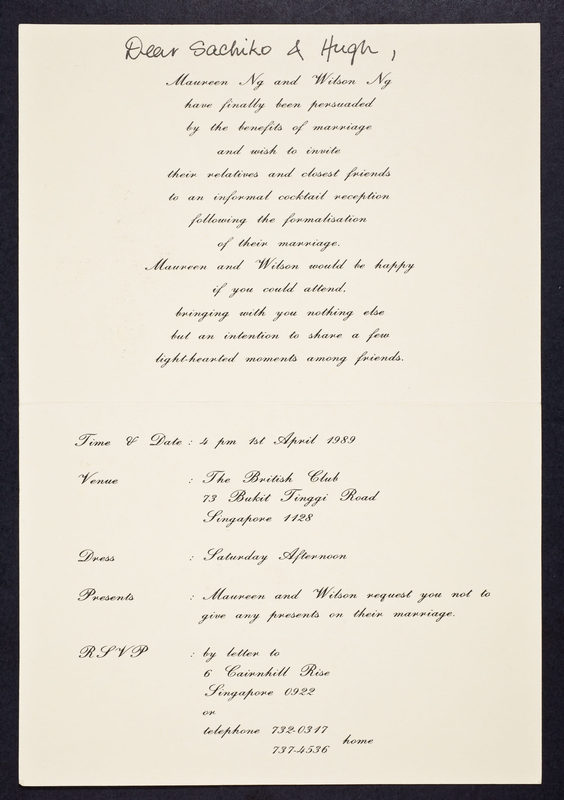 Dear Sachiko & Hugh,
Maureen Ng and Wilson Ng
have finally been persuaded
by the benefits of marriage
and wish to invite
their relatives and closest friends
to an informal cocktail reception
following the formalisation
of their marriage.
Maureen and Wilson would be happy
if you could attend,
bringing with you nothing else
but an intention to share a few
light-hearted moments among friends.
Time & Date : 4 pm 1st April 1989
Venue : The British Club
73 Bukit Tinggi Road
Singapore 1128
Dress : Saturday Afternoon
Presents : Maureen and Wilson request you not to
give any presents on their marriage.
RSVP : by letter to
6 Cairnhill Rise
Singapore 0922
or
telephone 732-0317
737-4536 home